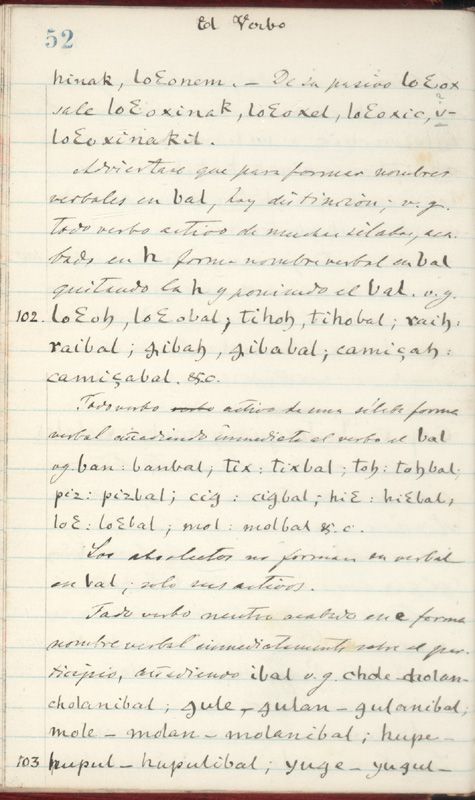 52 El Verbo
hinak, loƐonem. – De su pasivo loƐox
sale loƐoxinak, loƐoxel, loƐoxic, v-
loƐoxinakil.
Adviertase que para formar nombres
verbales en bal, hay distincion; v.g.
todo verbo activo de muchas silabas, aca-
bado en h forma nombre verbal en bal
quitando la h y poniendo el bal. v.g.
102. loƐoh, loƐobal; tihoh, tihobal; raih:
raibal; gibah, gibabal; camiçah:
camiçabal. &c.
Todo verbo verbo activo de una silaba forma
verbal añadiendo immediate al verbo el bal
vg. ban: banbal; tix: tixbal; toh: tohbal;
piz: pizbal; cig: cigbal; hiƐ: hiƐbal;
loƐ: loƐbal; mol: molbal &.c.
Los absolutos no forman su verbal
en bal; solo sus activos.
Todo verbo neutro acabado en e forma
nombre verbal immediatamente sobre el par-
ticipio, añadiendo ibal v.g. chole-cholan-
cholanibal; gule-gulan-gulanibal;
mole – molan – molanibal; hupe-
103 hupul – hupulibal; yuge – yugul –